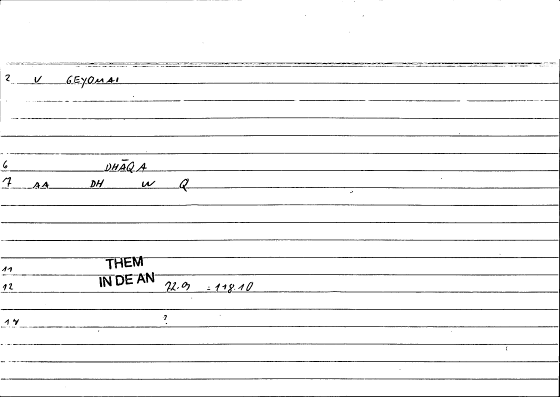 2 V GEYOMAI
6 DHĀQA
7 AA DH W Q
11 THEM
12 IN DE AN 72.9 = 118.10
14 ?